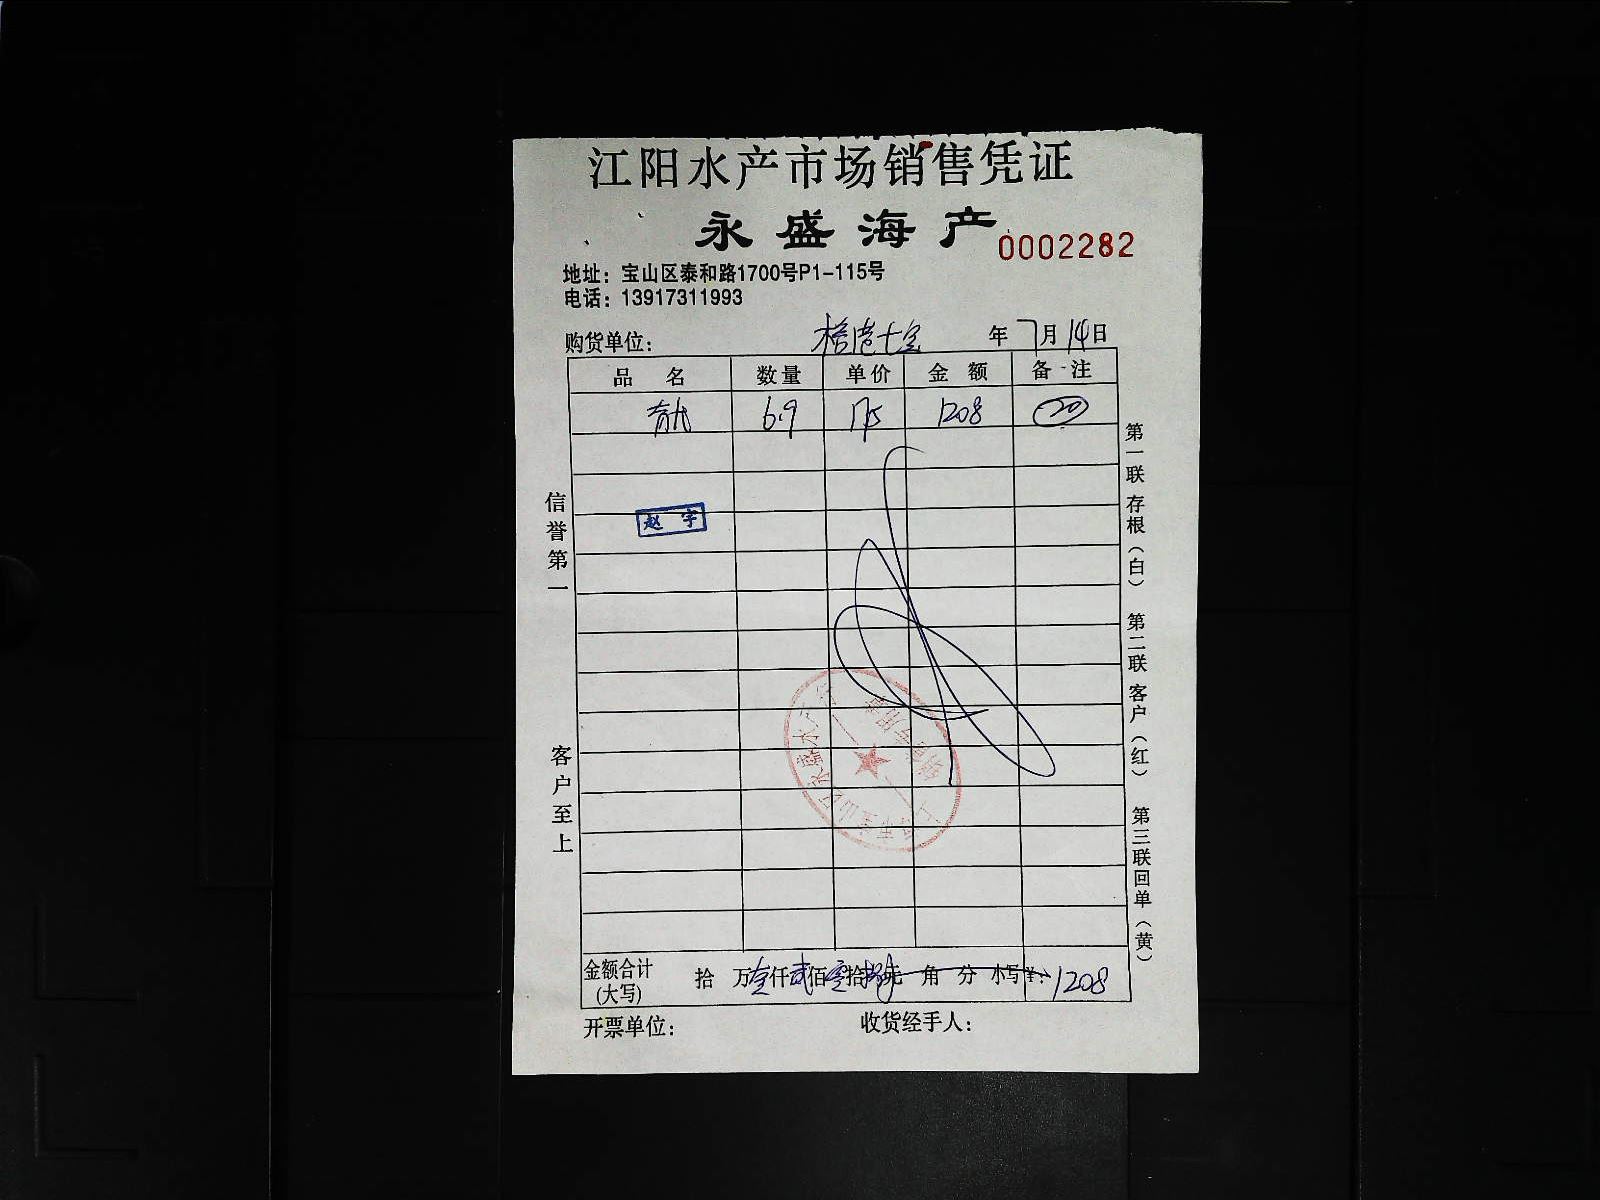 江阳水产市场销售凭证
永盛海产
0002282
地址：宝山区泰和路1700号P1-115号
电话：13917311993
购货单位： 年 7月14日
品名 数量 单价 金额 备注
6.9 175 1208 20
赵宇
信誉第一
客户至上
第一联 存根（白） 第二联 客户（红） 第三联 回单（黄）
金额合计(大写) 拾 万壹仟贰佰零拾捌元 角 分 小写¥：1208
开票单位： 收货经手人：